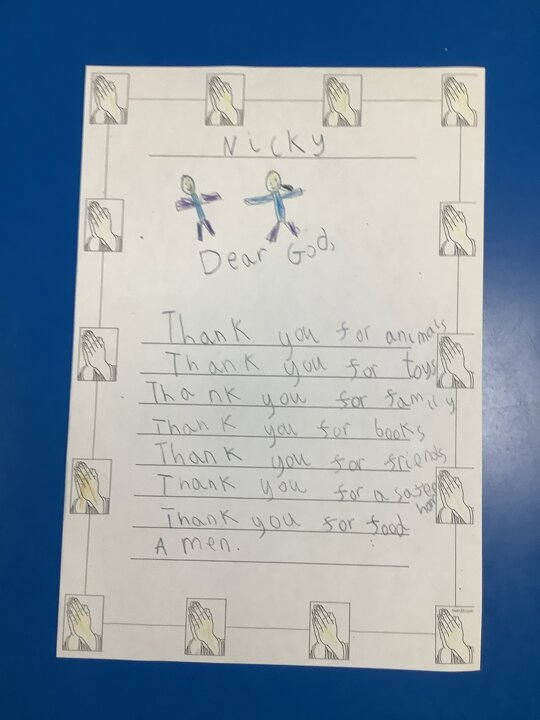 Nicky
Dear God,
Thank you for animals
Thank you for toys
Thank you for family
Thank you for books
Thank you for friends
Thank you for a safe
home
Thank you for food
Amen.